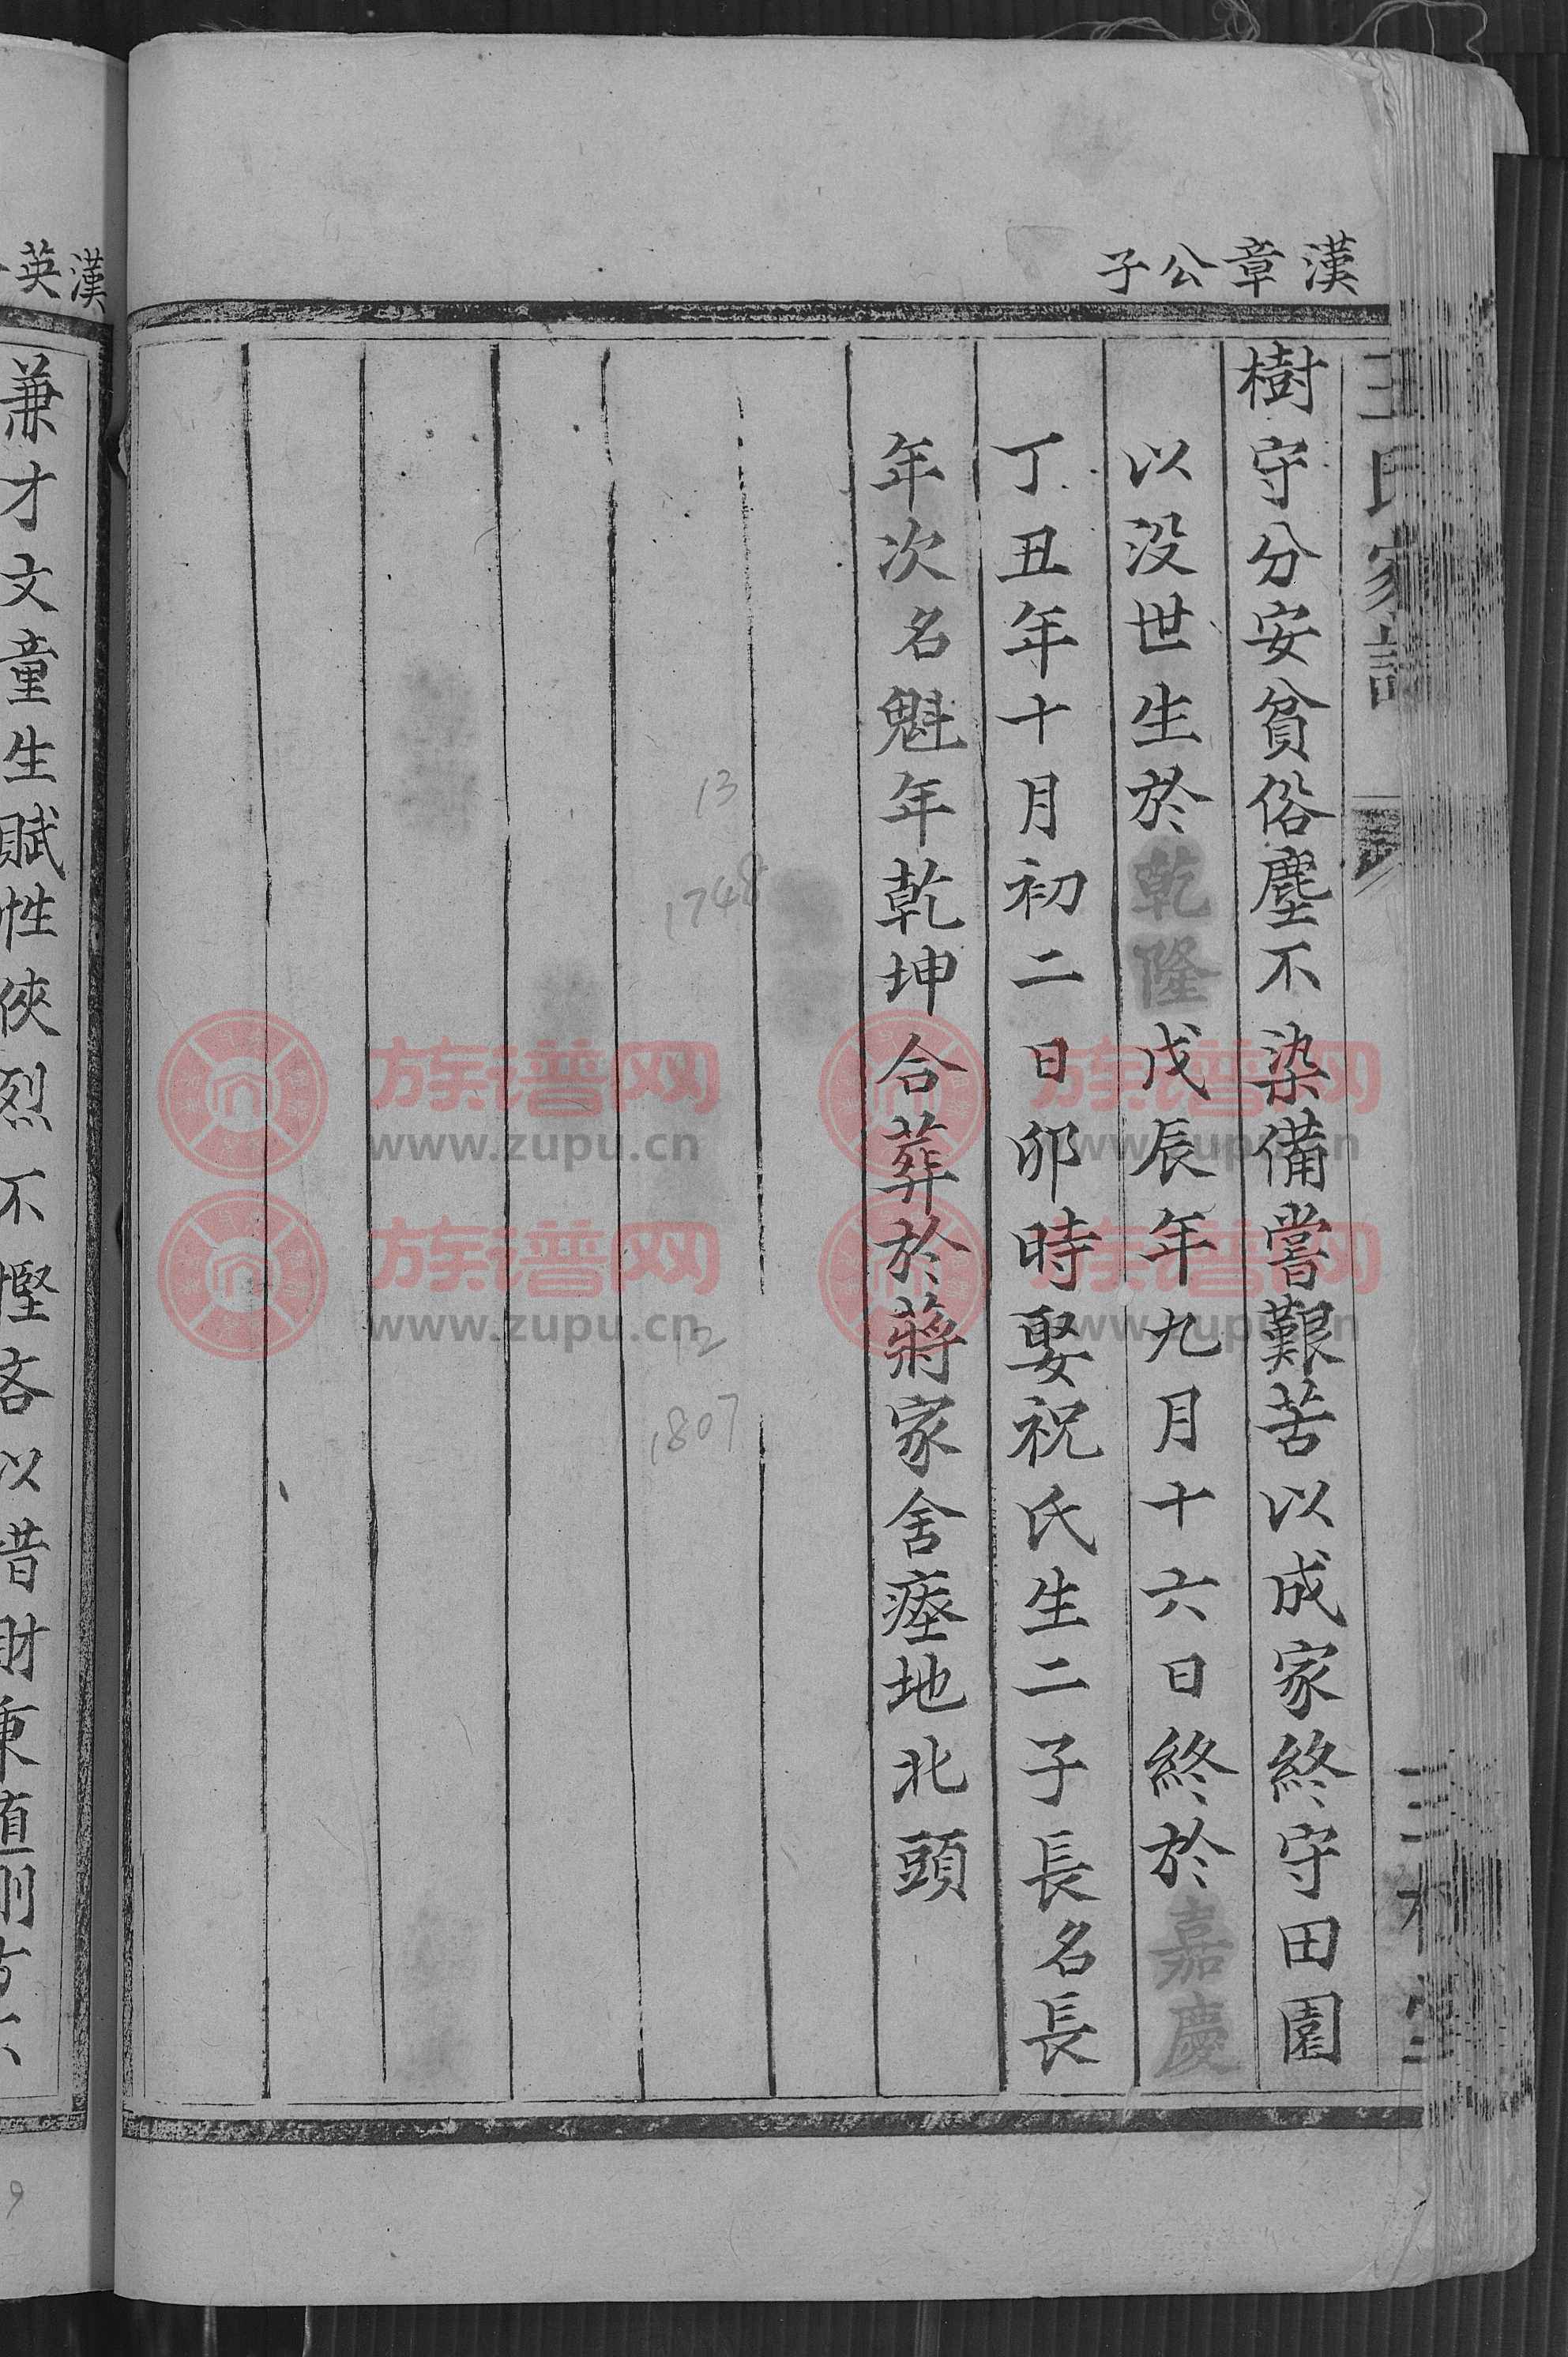 漢章公子
王氏家譜
樹守分安貧俗塵不染備嘗艱苦以成家終守田園
以没世生於乾隆戊辰年九月十六日終於嘉慶
丁丑年十月初二日卯時娶祝氏生二子長名長
年次名魁年乾坤合葬於蔣家舍瘞地北頭
13
1748
12
1807
漢英
兼才文童生賦性俠烈不慳吝以昔財秉直剛方
9
族谱网
www.zupu.cn
族谱网
www.zupu.cn
族谱网
www.zupu.cn
族谱网
www.zupu.cn